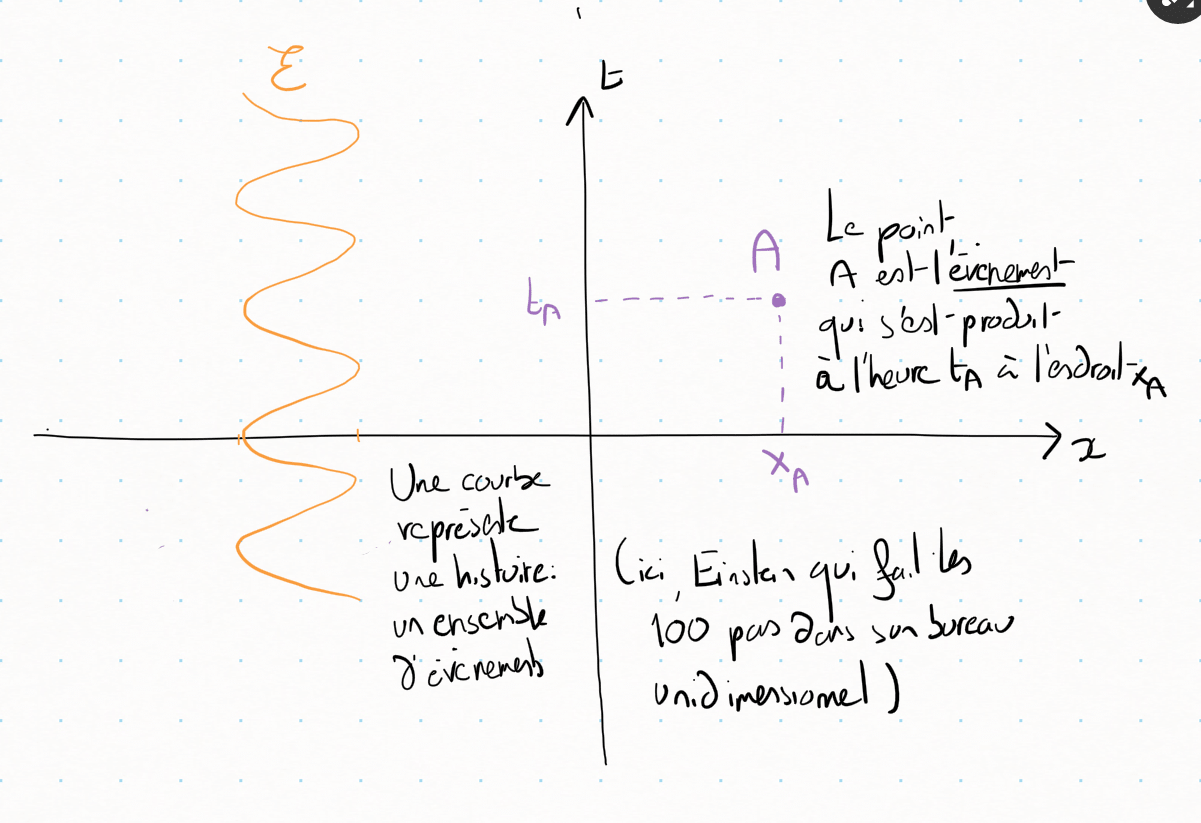 ℰ
t
A
t_A
x_A
x
Le point
A est l'évènement
qui s'est produit
à l'heure t_A à l'endroit x_A
Une courbe
représente
une histoire:
un ensemble
d'évènements
(ici, Einstein qui fait les
100 pas dans son bureau
unidimensionnel)